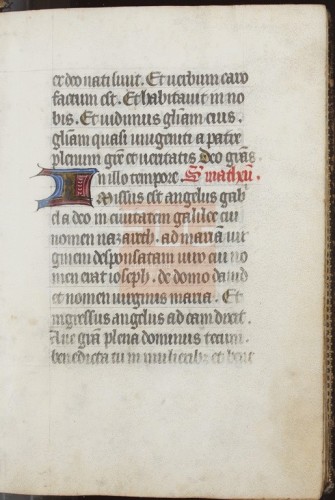 ex deo nati sunt. Et verbum caro
factum est. Et habitavit in no
bis. Et vidimus gliam eius.
gliam quasi unigeniti a patre
plenum gre et veritatis Deo gras.
In illo tempore. S mathei.
Missus est angelus gab
el a deo in civitatem galilee cui
nomen nazareth. ad mariam vir
ginem desponsatam viro cui no
men erat ioseph. de domo david
et nomen virginis maria. Et
ingressus angelus ad eam dixit.
Ave gra plena dominus tecum.
benedicta tu in mulierib; et bene